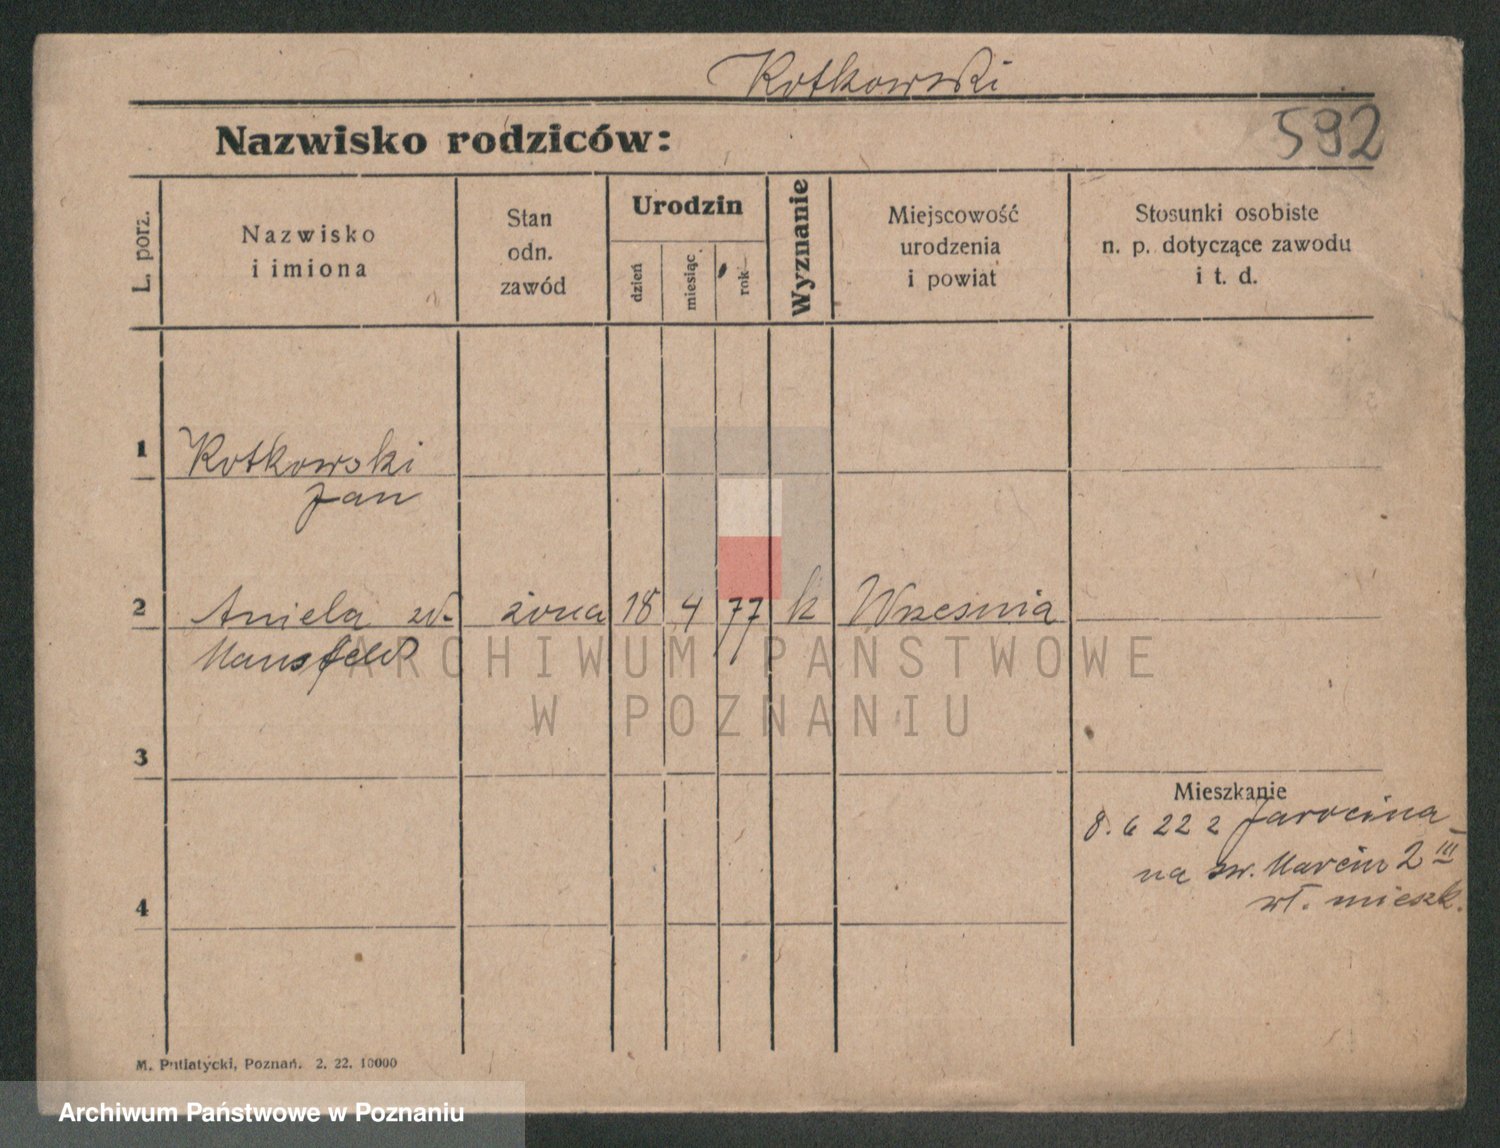 Kotkowski
Nazwisko rodziców:
592
L. porz.
Nazwisko
i imiona
Stan
odn.
zawód
Urodzin
dzień
miesiąc
rok
Wyznanie
Miejscowość
urodzenia
i powiat
Stosunki osobiste
n. p. dotyczące zawodu
i t. d.
1
Kotkowski
Jan
2
Aniela zd.
żona
18
4
77
k
Wrzesnia
Mansfeld
ARCHIWUM PAŃSTWOWE
W POZNANIU
3
Mieszkanie
8. 6 22 z Jarocina
na św. Marcin 2 III
wł. mieszk.
4
M. Putiatycki, Poznań. 2. 22. 10000
Archiwum Państwowe w Poznaniu